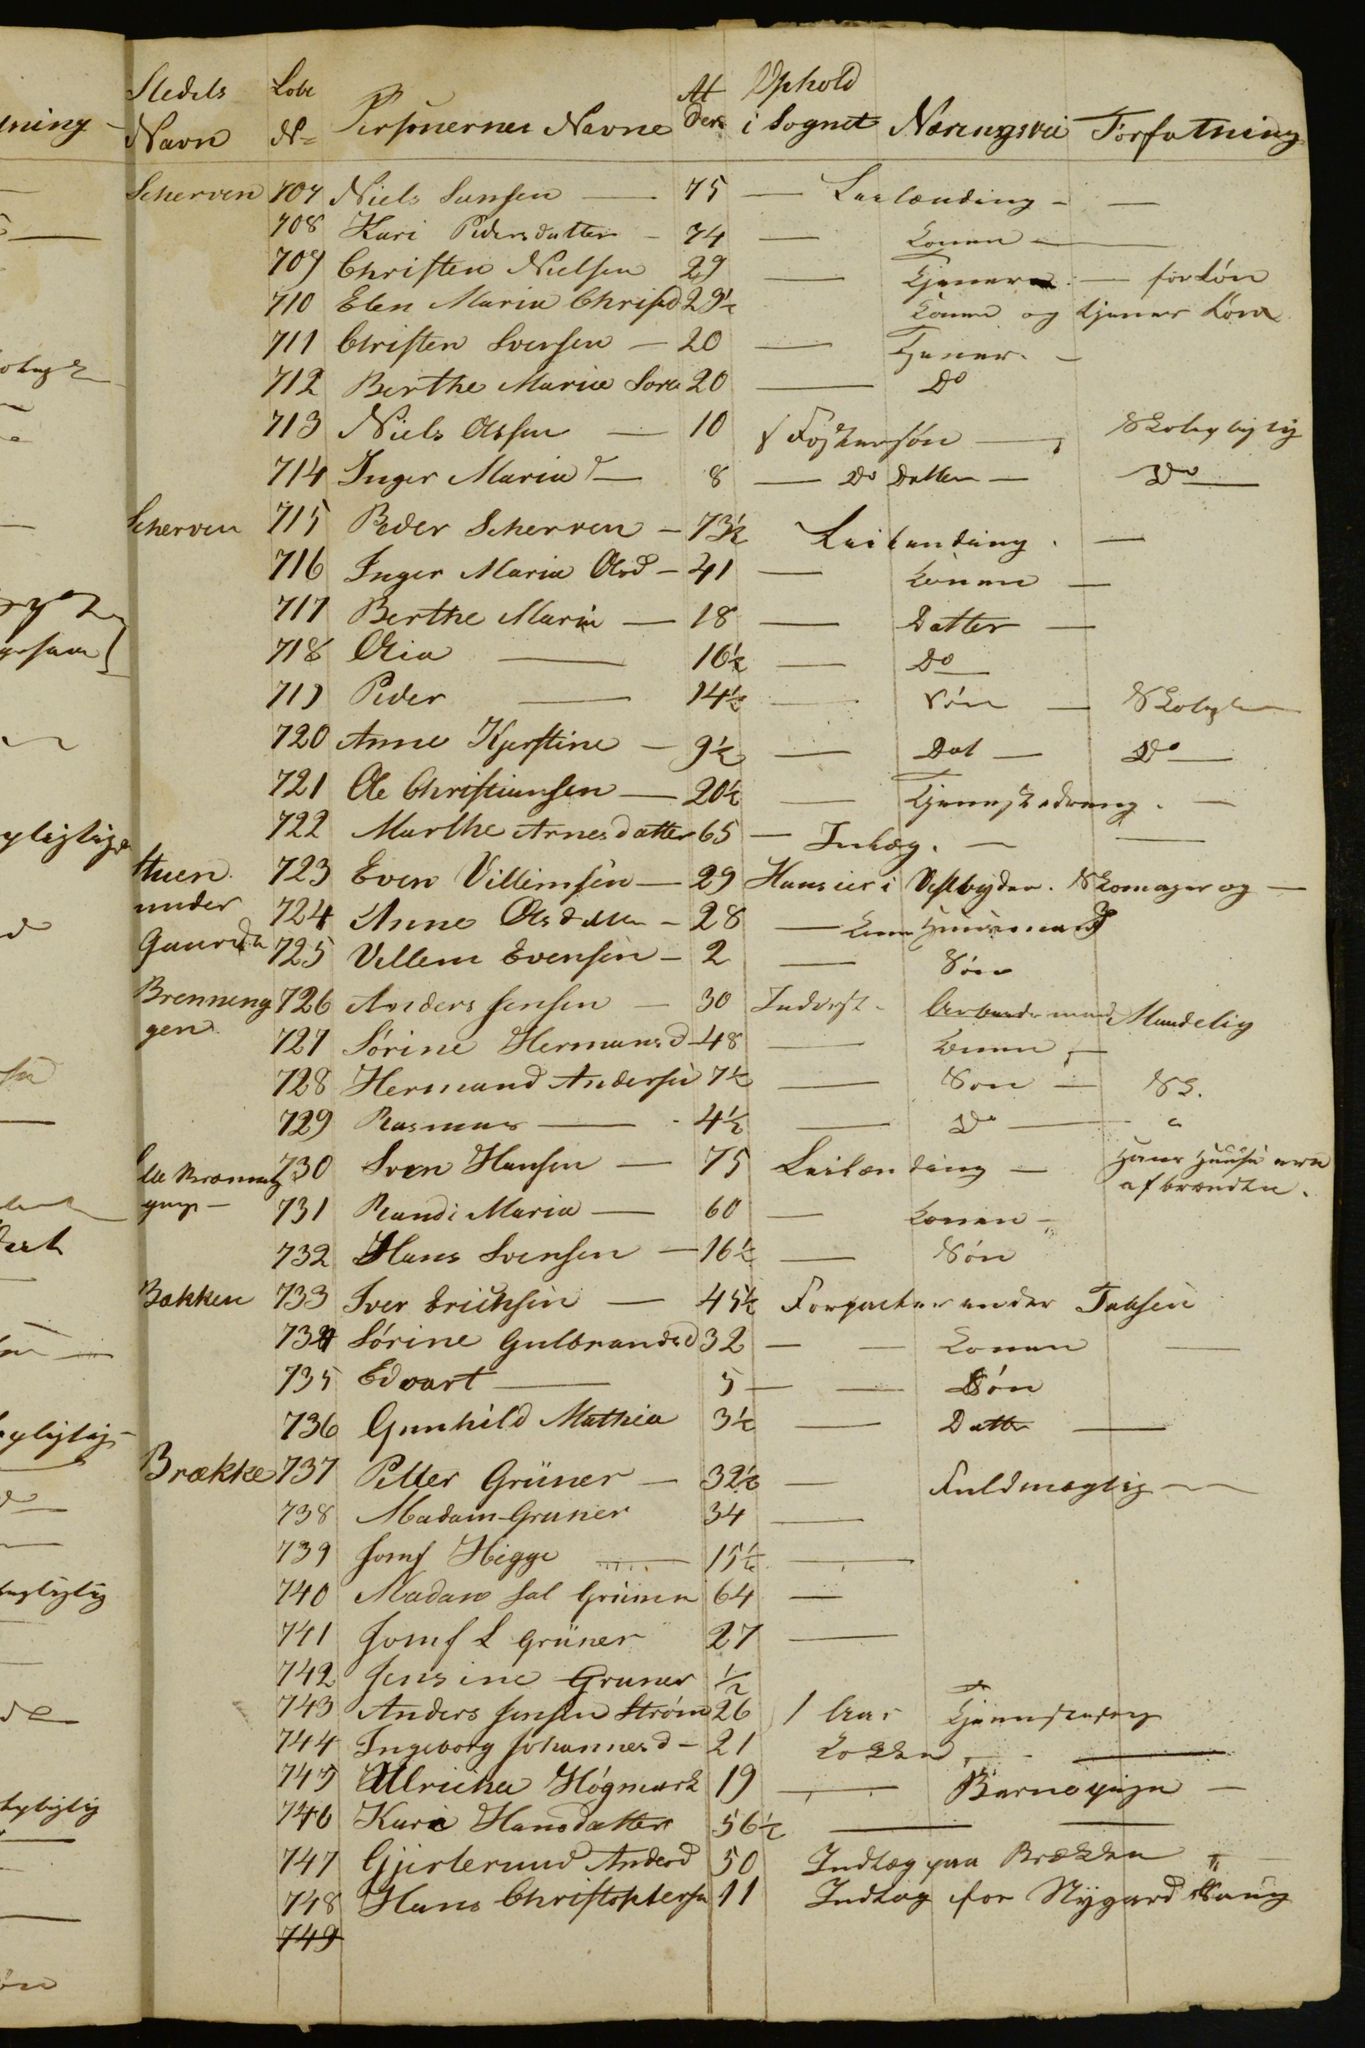 Stedets Lobe Al Ophold
Navn N= Personernes Navne der i Sognet Næringsvei Forfatning
Scherven 707 Niels Jensen — 75 — Leilænding — —
708 Kari Pedersdatter — 74 — Konen —
709 Christen Nielsen 29 — Tjener — for Løn
710 Elen Maria Christd 29½ Konen og tjener Løn
711 Christen Svensen — 20 — Tjener. —
712 Berthe Maria 20 — Do
713 Niels Olssen — 10 Fostersøn — Skolepligtig
714 Inger Maria — 8 — Do Datter — Do —
Scherven 715 Peder Scherven — 73½ Leilending. —
716 Inger Maria Olsd — 41 — Konen —
717 Berthe Maria — 18 — Datter —
718 Olia — 16½ — Do
719 Peder — 14½ — Søn — Skolepl
720 Anne Kjerstine — 9½ — Dat — Do —
721 Ole Christiansen — 20½ — Tjenestedreng. —
722 Marthe Arnesdatter 65 — Inlæg. — —
Huen 723 Even Villimsen — 29 Huus ier i Vestbyden. Skomager og —
under 724 Anne Olsdatter — 28 — Kone Huusmand
725 Villem Evensen — 2 — Søn
Brenneng 726 Anders Jensen — 30 Inderst. Arbeidsmand Maadelig
gen 727 Sørine Hermansd — 48 — Konen —
728 Hermand Andersen 7½ — Søn — Sk.
729 Rasmus — 4½ — Do —
730 Sven Hansen — 75 Leilænding — Hans Huuse ere
731 Randi Maria — 60 — Konen — afbrændte.
732 Hans Svensen — 16½ — Søn
Bakken 733 Iver Erichsen — 45½ Forpacter under Tabsen
734 Sørine Gulbrandsd 32 — — Konen —
735 Edvart — 5 — — Søn
736 Gunhild Mathia 3½ — Datter —
Brække 737 Petter Grüner — 32½ — Fuldmægtig —
738 Madam Gruner 34 —
739 Jomf Higge — 15½ —
740 Madam Sal Grüner 64 —
741 Jomf L Grüner 27 —
742 Jensine Gruner ½
743 Anders Jensen Strøm 26 1 Aar
744 Ingeborg Johannesd — 21 Kokke —
745 Ulricha Högmark 19 — Barnepige —
746 Kari Hansdatter 56½ — —
747 Gjerterund Andersd 50 Indlæg paa Brække
748 Hans Christophersen 11 Indlæg for Nygard Saug
749